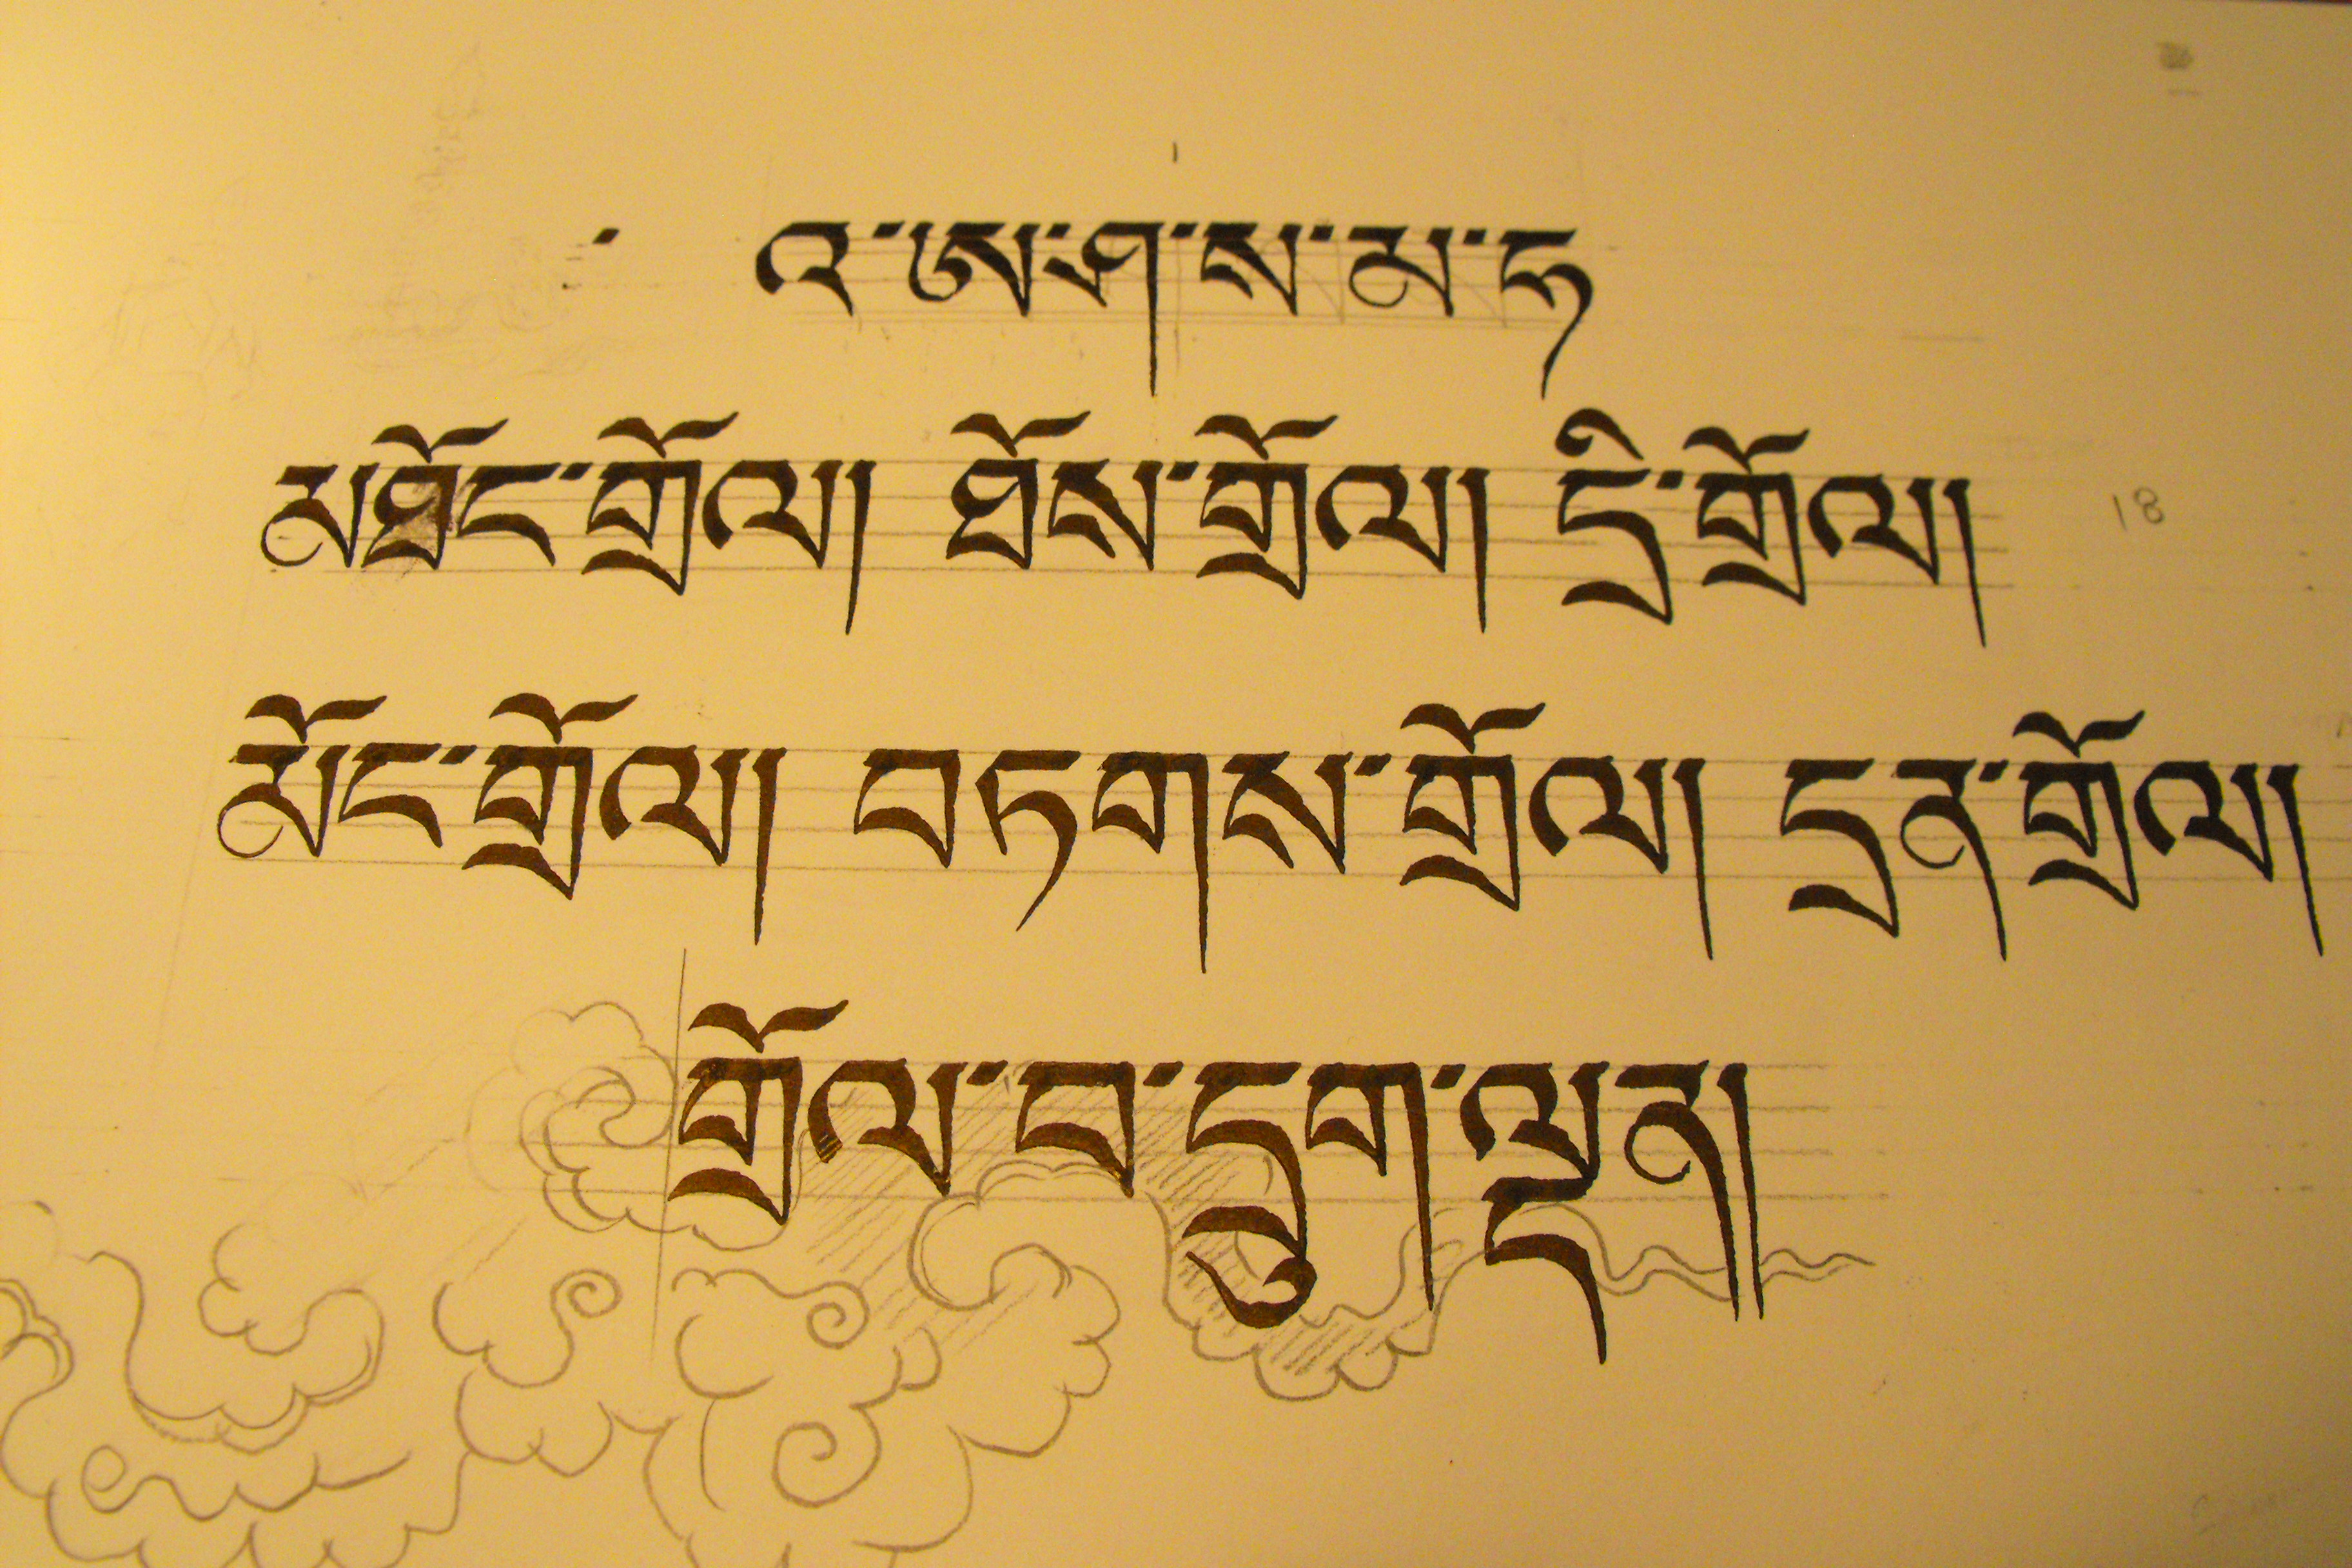 འ་ཨ་ཤ་ས་མ་ཧ
མཐོང་གྲོལ། ཐོས་གྲོལ། དྲི་གྲོལ།
18
མོང་གྲོལ། བཏགས་གྲོལ། དྲན་གྲོལ།
གྲོལ་བ་དྲུག་ལྡན།